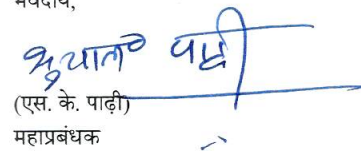 भवदीय,
पाढ़ी
(एस. के. पाढ़ी)
महाप्रबंधक